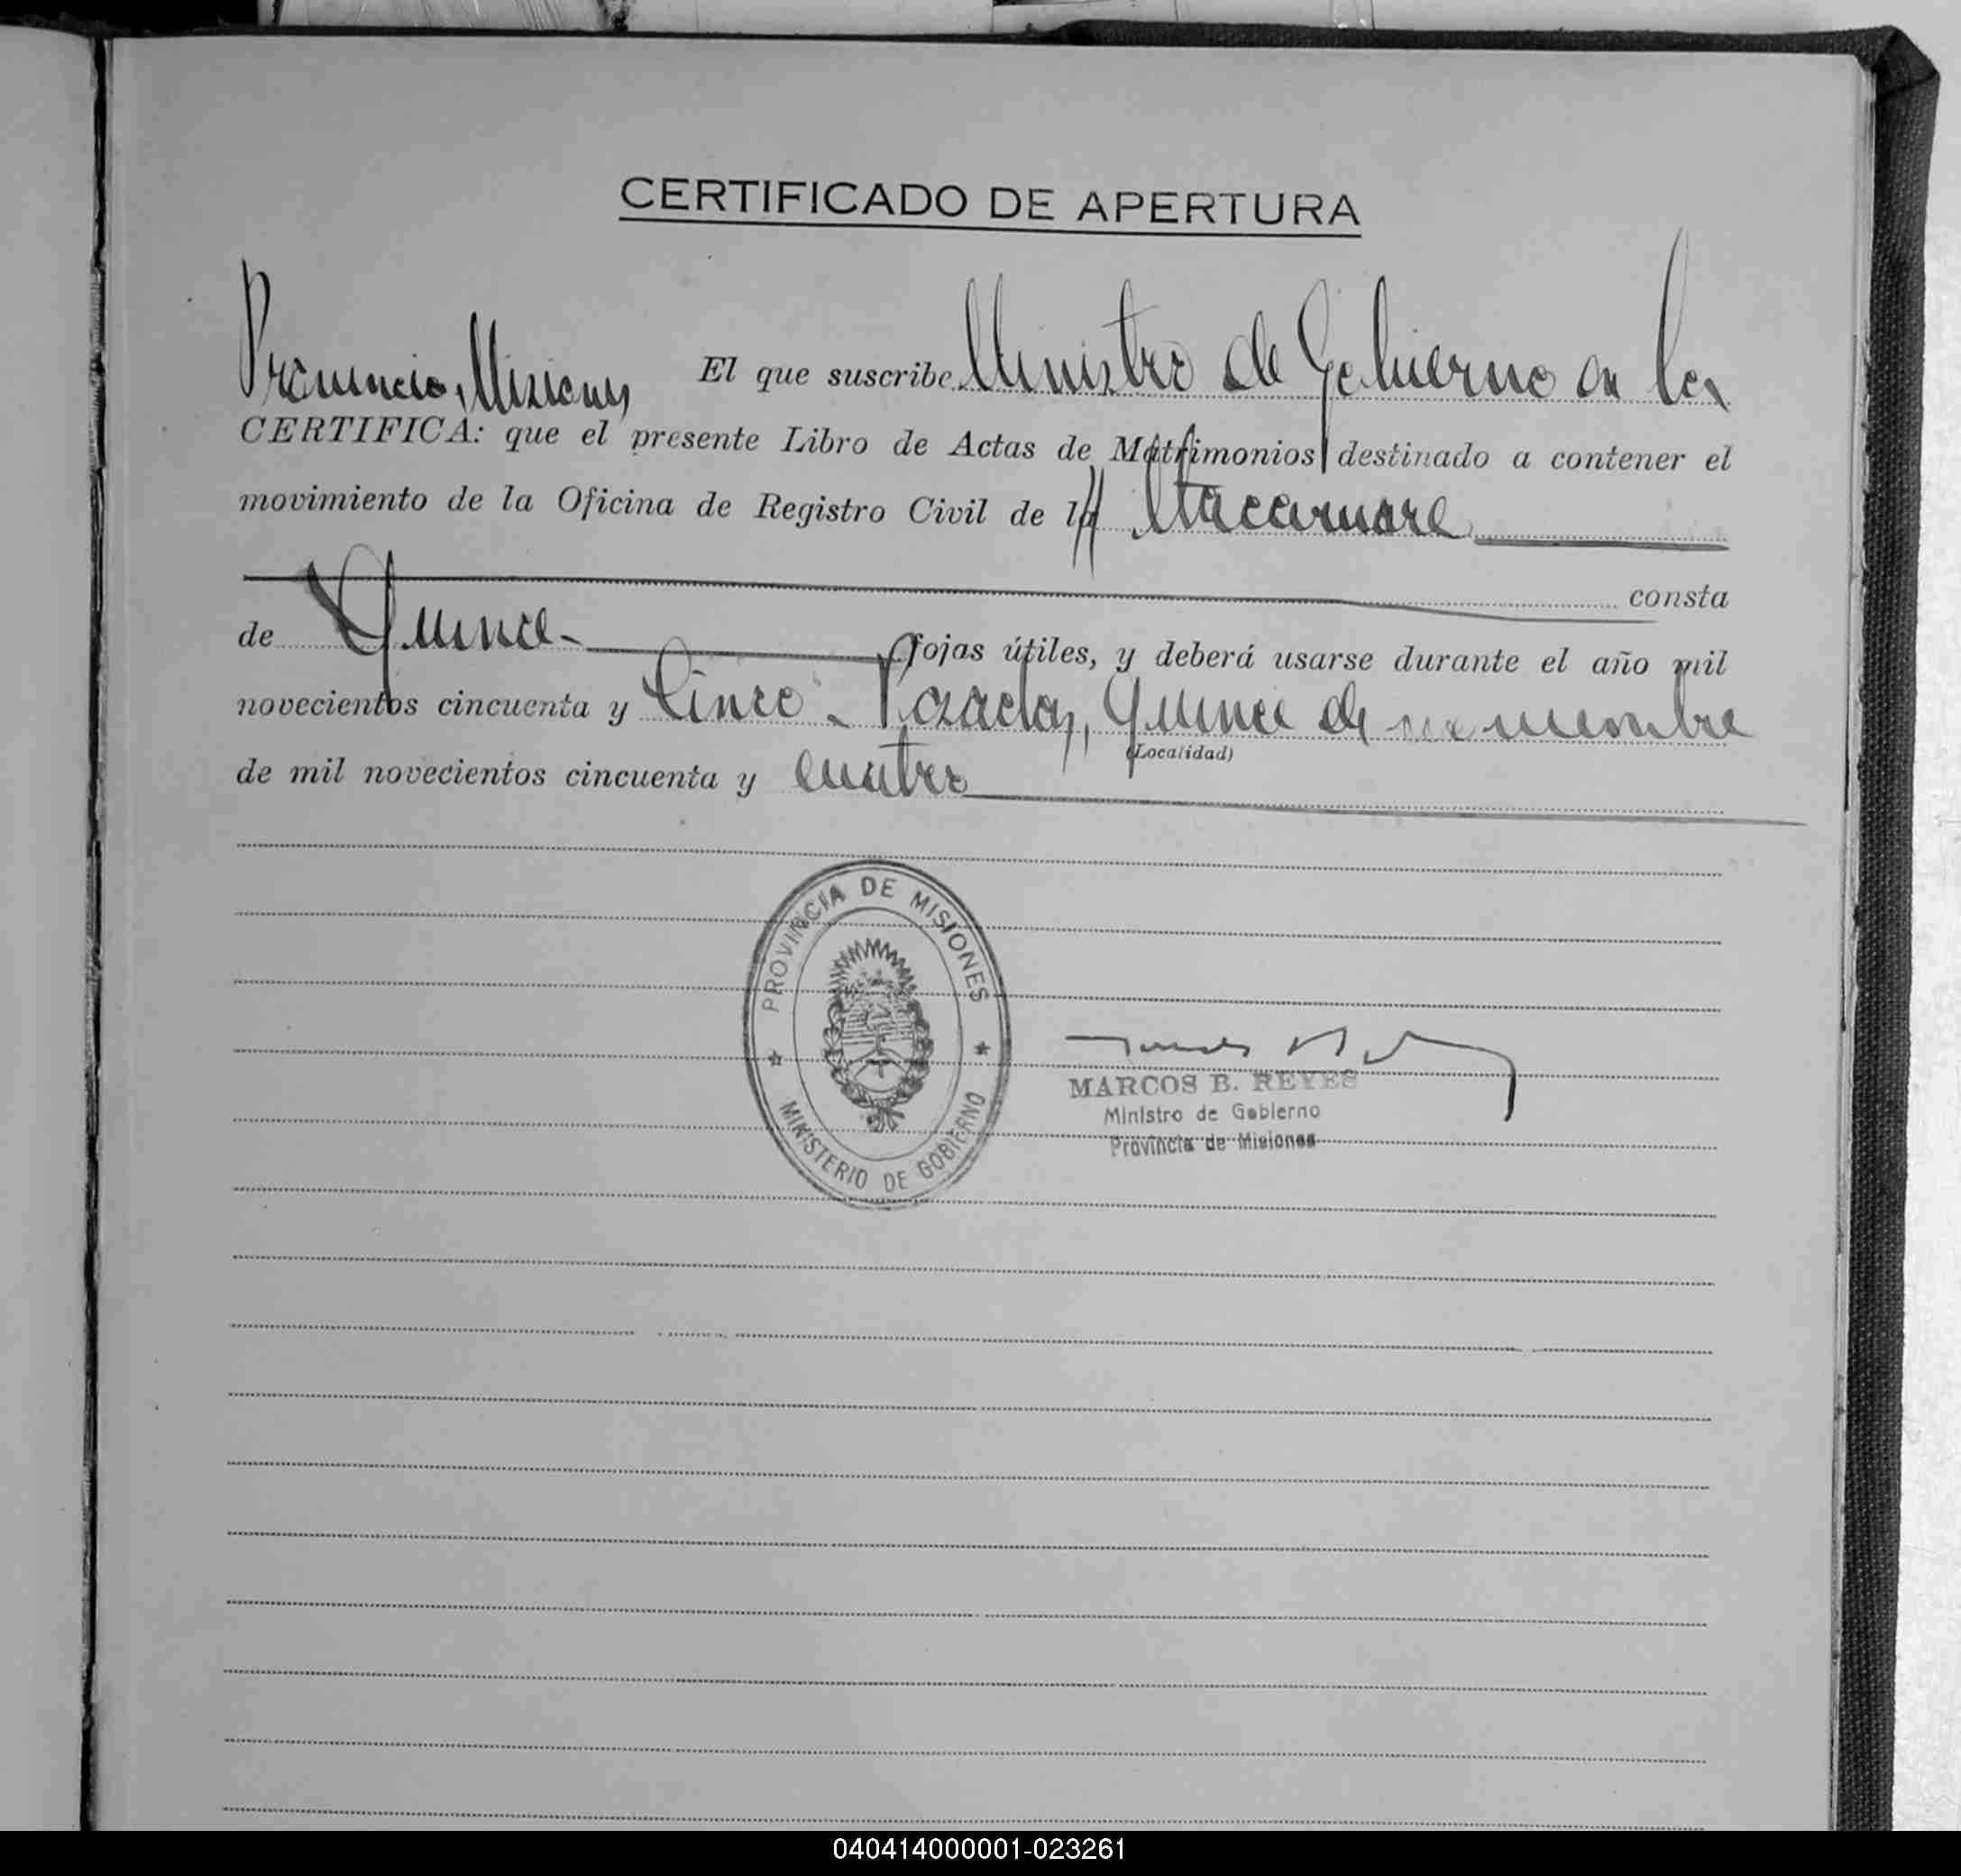 CERTIFICADO DE APERTURA
El que suscribe Ministro de Gobierno en la
Provincia Misiones
CERTIFICA: que el presente Libro de Actas de Matrimonios destinado a contener el
movimiento de la Oficina de Registro Civil de la Itacaruare
consta
de Quince fojas útiles, y deberá usarse durante el año mil
novecientos cincuenta y Cinco - Posadas, Quince de noviembre
(Localidad)
de mil novecientos cincuenta y cuatro
PROVINCIA DE MISIONES
MINISTERIO DE GOBIERNO
MARCOS B. REYES
Ministro de Gobierno
Provincia de Misiones
040414000001-023261